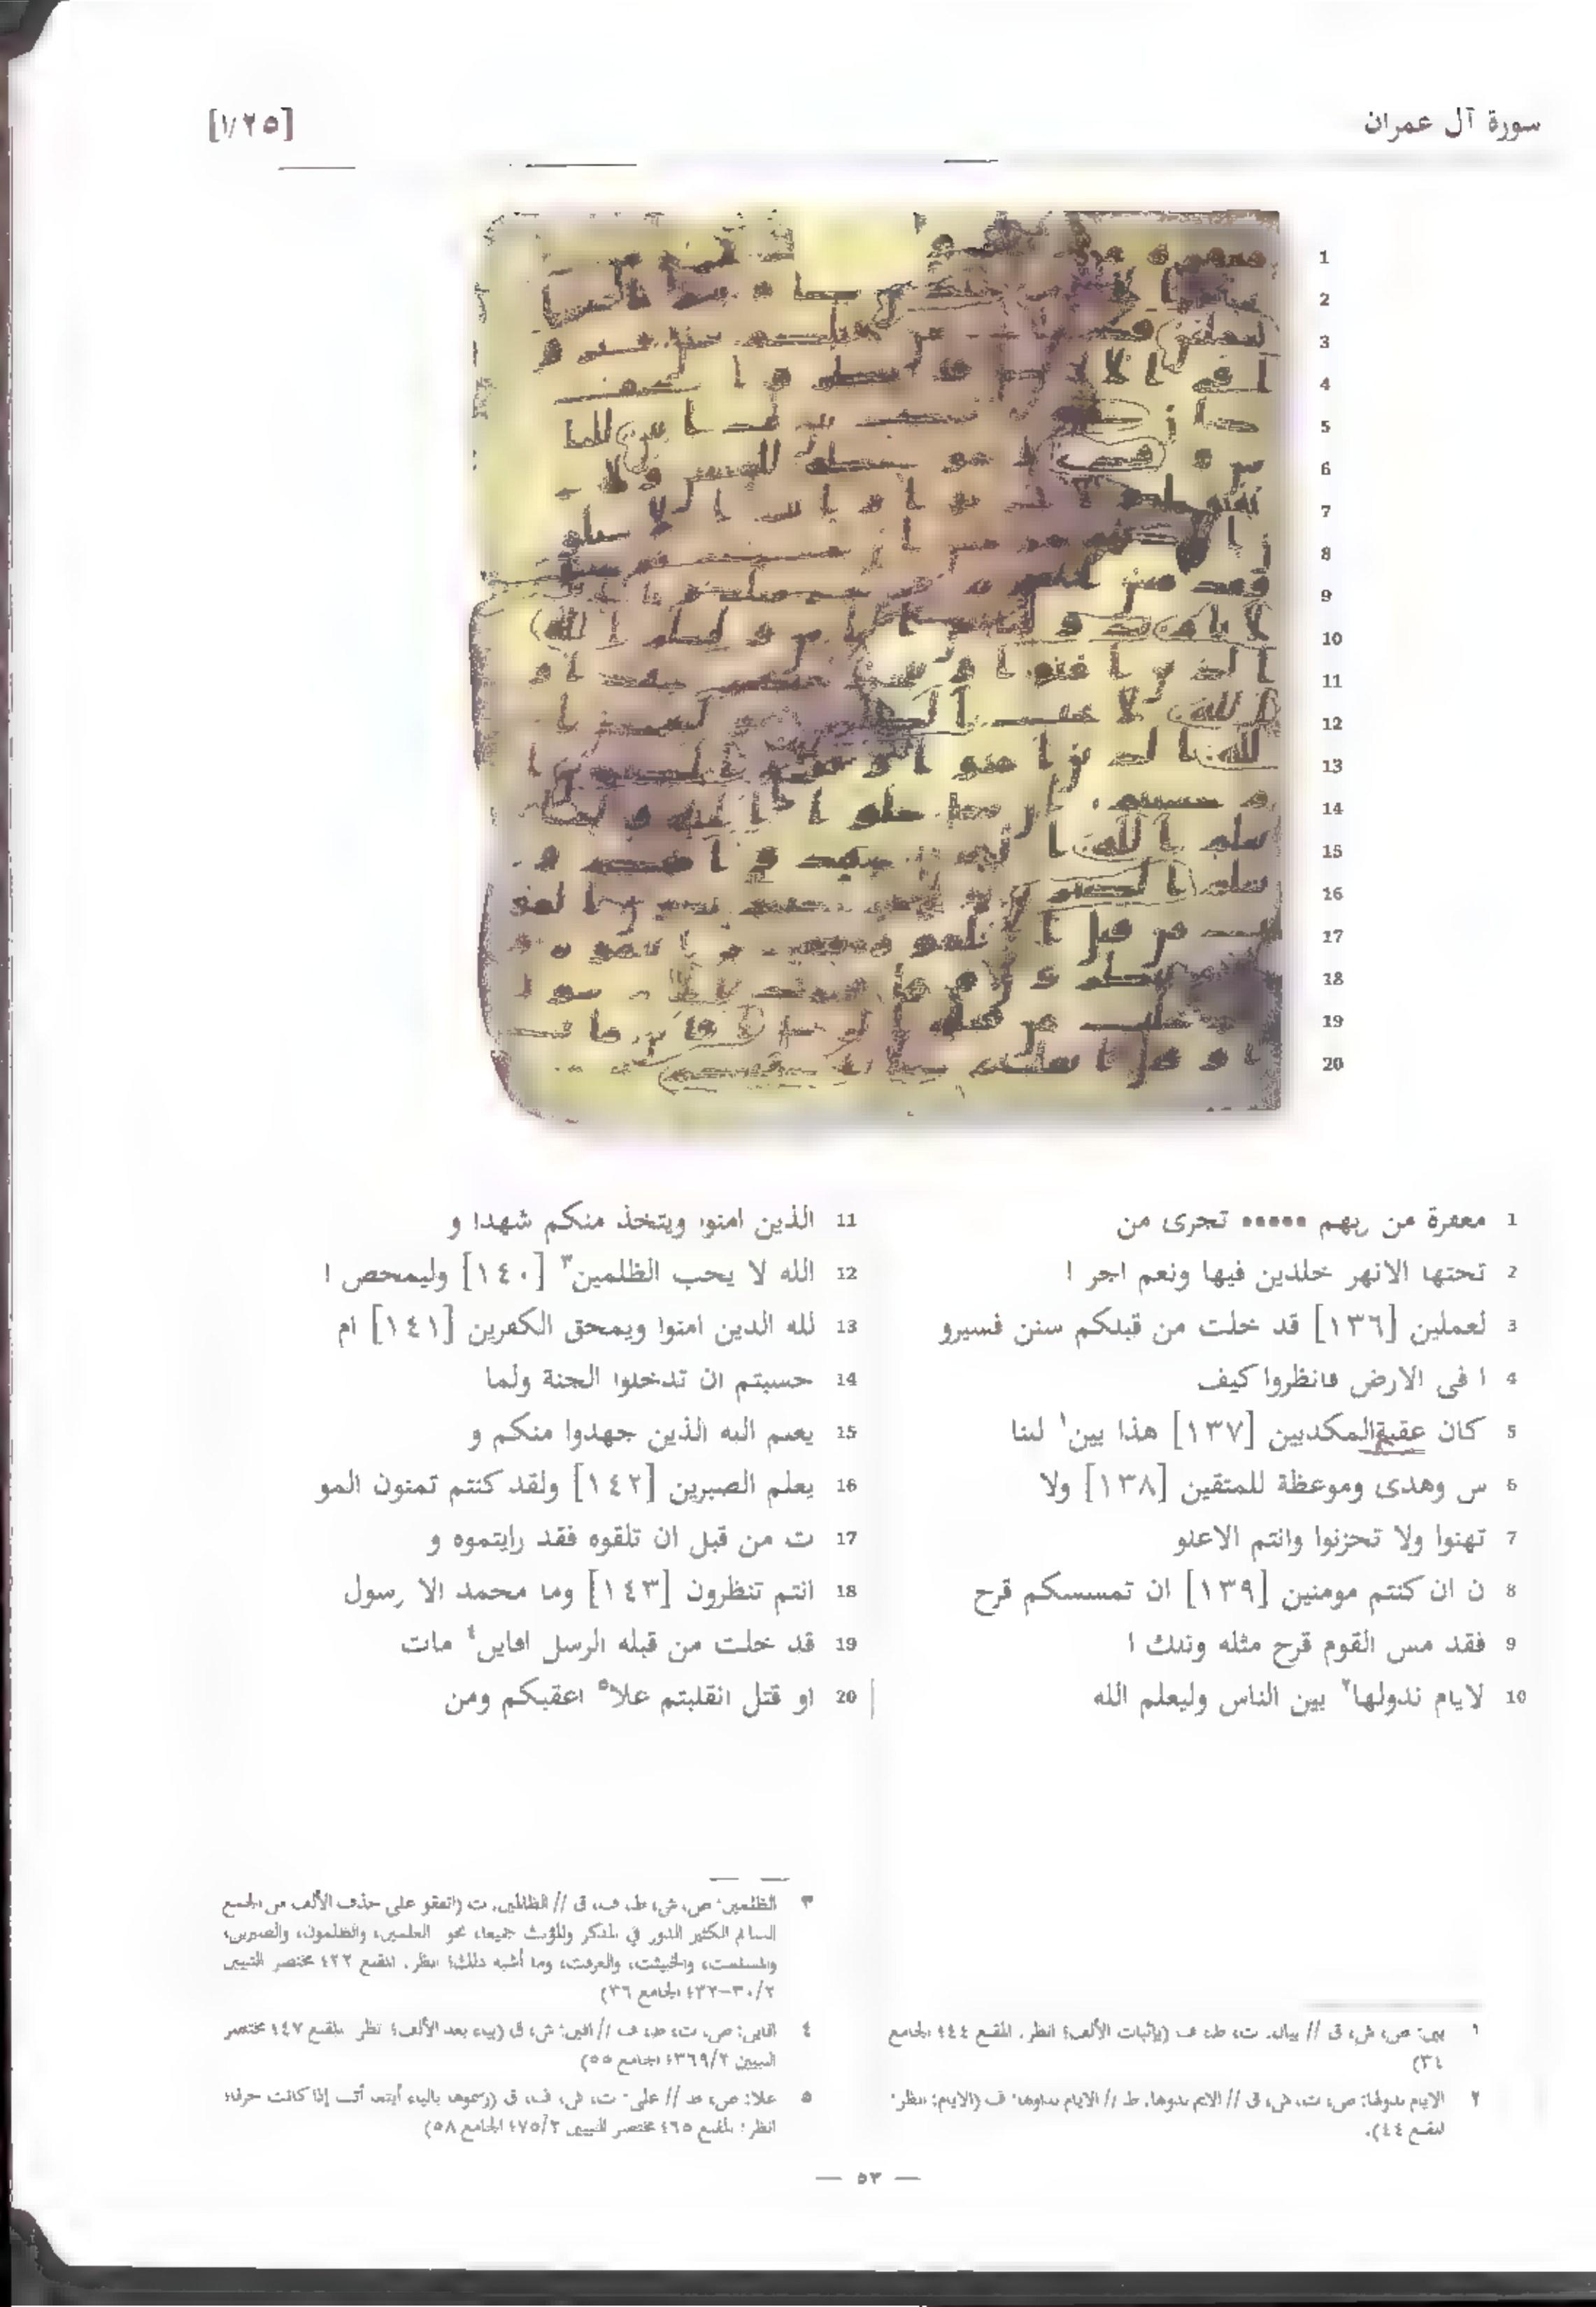 سورة آل عمران
[١/٢٥]
1 مغفرة من ربهم ••••• تجرى من
2 تحتها الانهر خلدين فيها ونعم اجر ا
3 لعملين [١٣٦] قد خلت من قبلكم سنن فسيرو
4 ا فى الارض فانظروا كيف
5 كان عقبة المكذبين [١٣٧] هذا بين١ للنا
6 س وهدى وموعظة للمتقين [١٣٨] ولا
7 تهنوا ولا تحزنوا وانتم الاعلو
8 ن ان كنتم مومنين [١٣٩] ان تمسسكم قرح
9 فقد مس القوم قرح مثله وتلك ا
10 لايام ندولها٢ بين الناس وليعلم الله
11 الذين امنوا ويتخذ منكم شهدا و
12 الله لا يحب الظلمين٣ [١٤٠] وليمحص ا
13 لله الذين امنوا ويمحق الكفرين [١٤١] ام
14 حسبتم ان تدخلوا الجنة ولما
15 يعلم الله الذين جهدوا منكم و
16 يعلم الصبرين [١٤٢] ولقد كنتم تمنون المو
17 ت من قبل ان تلقوه فقد رايتموه و
18 انتم تنظرون [١٤٣] وما محمد الا رسول
19 قد خلت من قبله الرسل افاين٤ مات
20 او قتل انقلبتم علا٥ اعقبكم ومن
١ بين: ص، ش، ق // بيان. ت، ط، ف (بإثبات الألف؛ انظر. المقنع ٤٤٤ الجامع
٣٤)
٢ الايام ندولها: ص، ت، ش، ق // الايم ندولها. ط // الايام نداولها: ف (الايام: انظر:
المقنع ٤٤).
٣ الظلمين: ص، ش، ط، ف، ق // الظالمين. ت (اتفقو على حذف الألف من الجمع
السالم الكثير الدور في المذكر والمؤنث جميعا، نحو العلمين، والظلمون، والصبرين،
والمسلمت، والخبيثت، والغرفت، وما أشبه ذلك؛ انظر. المقنع ٤٢٢ مختصر التبيين
٣٠/٢–٤٣٢ الجامع ٣٦)
٤ افاين: ص، ت، ط، ف // افين: ش، ق (بياء بعد الألف؛ انظر المقنع ١٤٧ مختصر
التبيين ٣٦٩/٢؛ الجامع ٥٥)
٥ علا: ص، ط // على: ت، ش، ف، ق (رسموها بالياء أينما أتت إذا كانت حرفا؛
انظر: المقنع ٤٦٥ مختصر التبيين ٧٥/٢؛ الجامع ٥٨)
— ٥٣ —